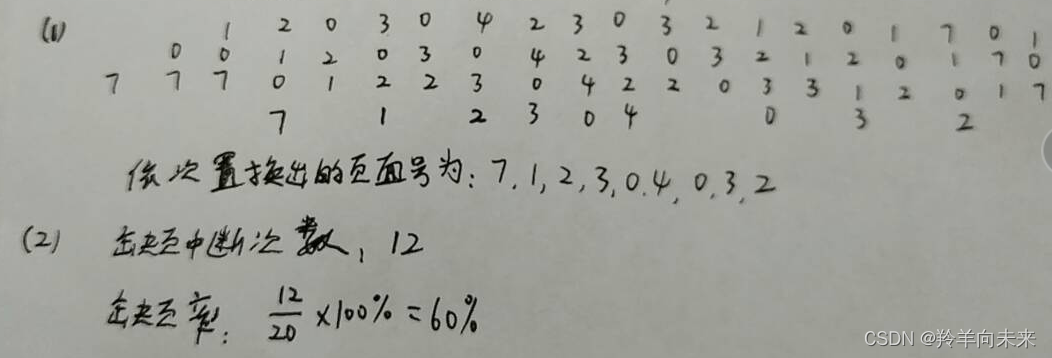 (1) 1 2 0 3 0 4 2 3 0 3 2 1 2 0 1 7 0 1
0 0 1 2 0 3 0 4 2 3 0 3 2 1 2 0 1 7 0
7 7 7 0 1 2 2 3 0 4 2 2 0 3 3 1 2 0 1 7
7 1 2 3 0 4 0 3 2
依次置换出的页面号为：7,1,2,3,0.4,0,3,2
(2) 缺页中断次数，12
缺页率：12/20×100%=60%
CSDN @羚羊向未来